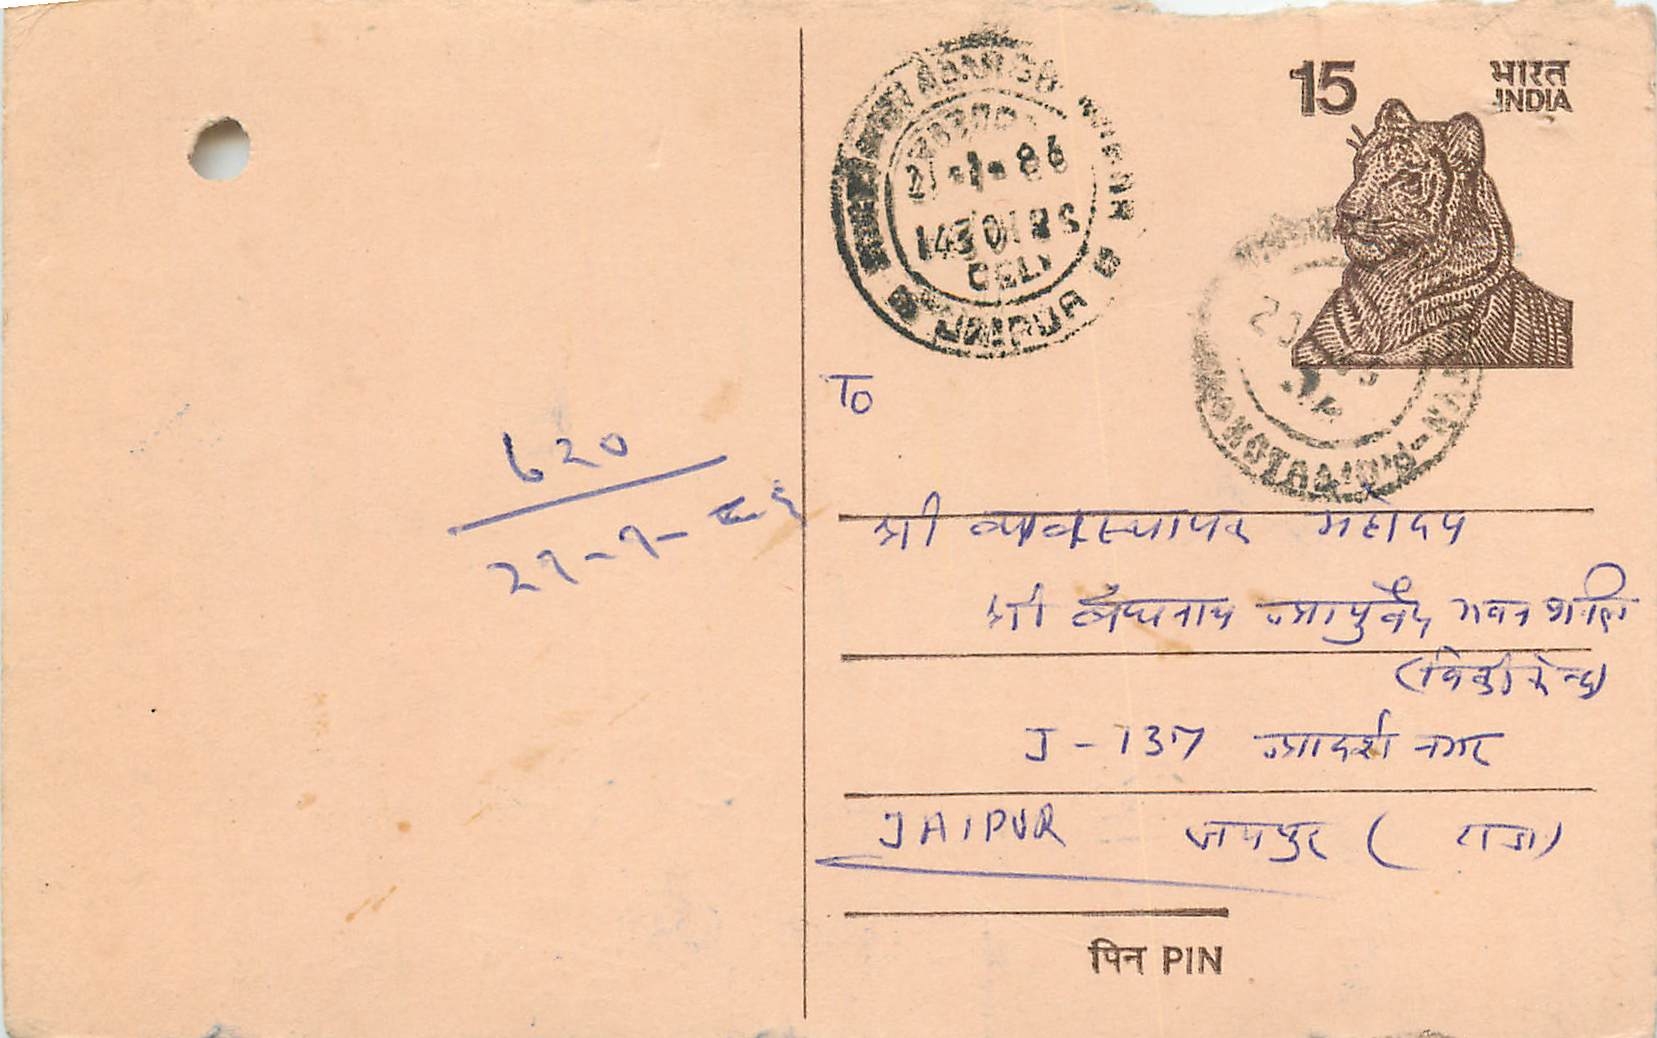 15 भारत
INDIA
21-1-86
1430 HRS
DELY
JAIPUR
To
620
21-1-८६
श्री व्यवस्थापक महोदय
श्री बैद्यनाथ आयुर्वेद भवन
(बिक्री केन्द्र)
J-137 आदर्श नगर
JAIPUR जयपुर (राज)
पिन PIN